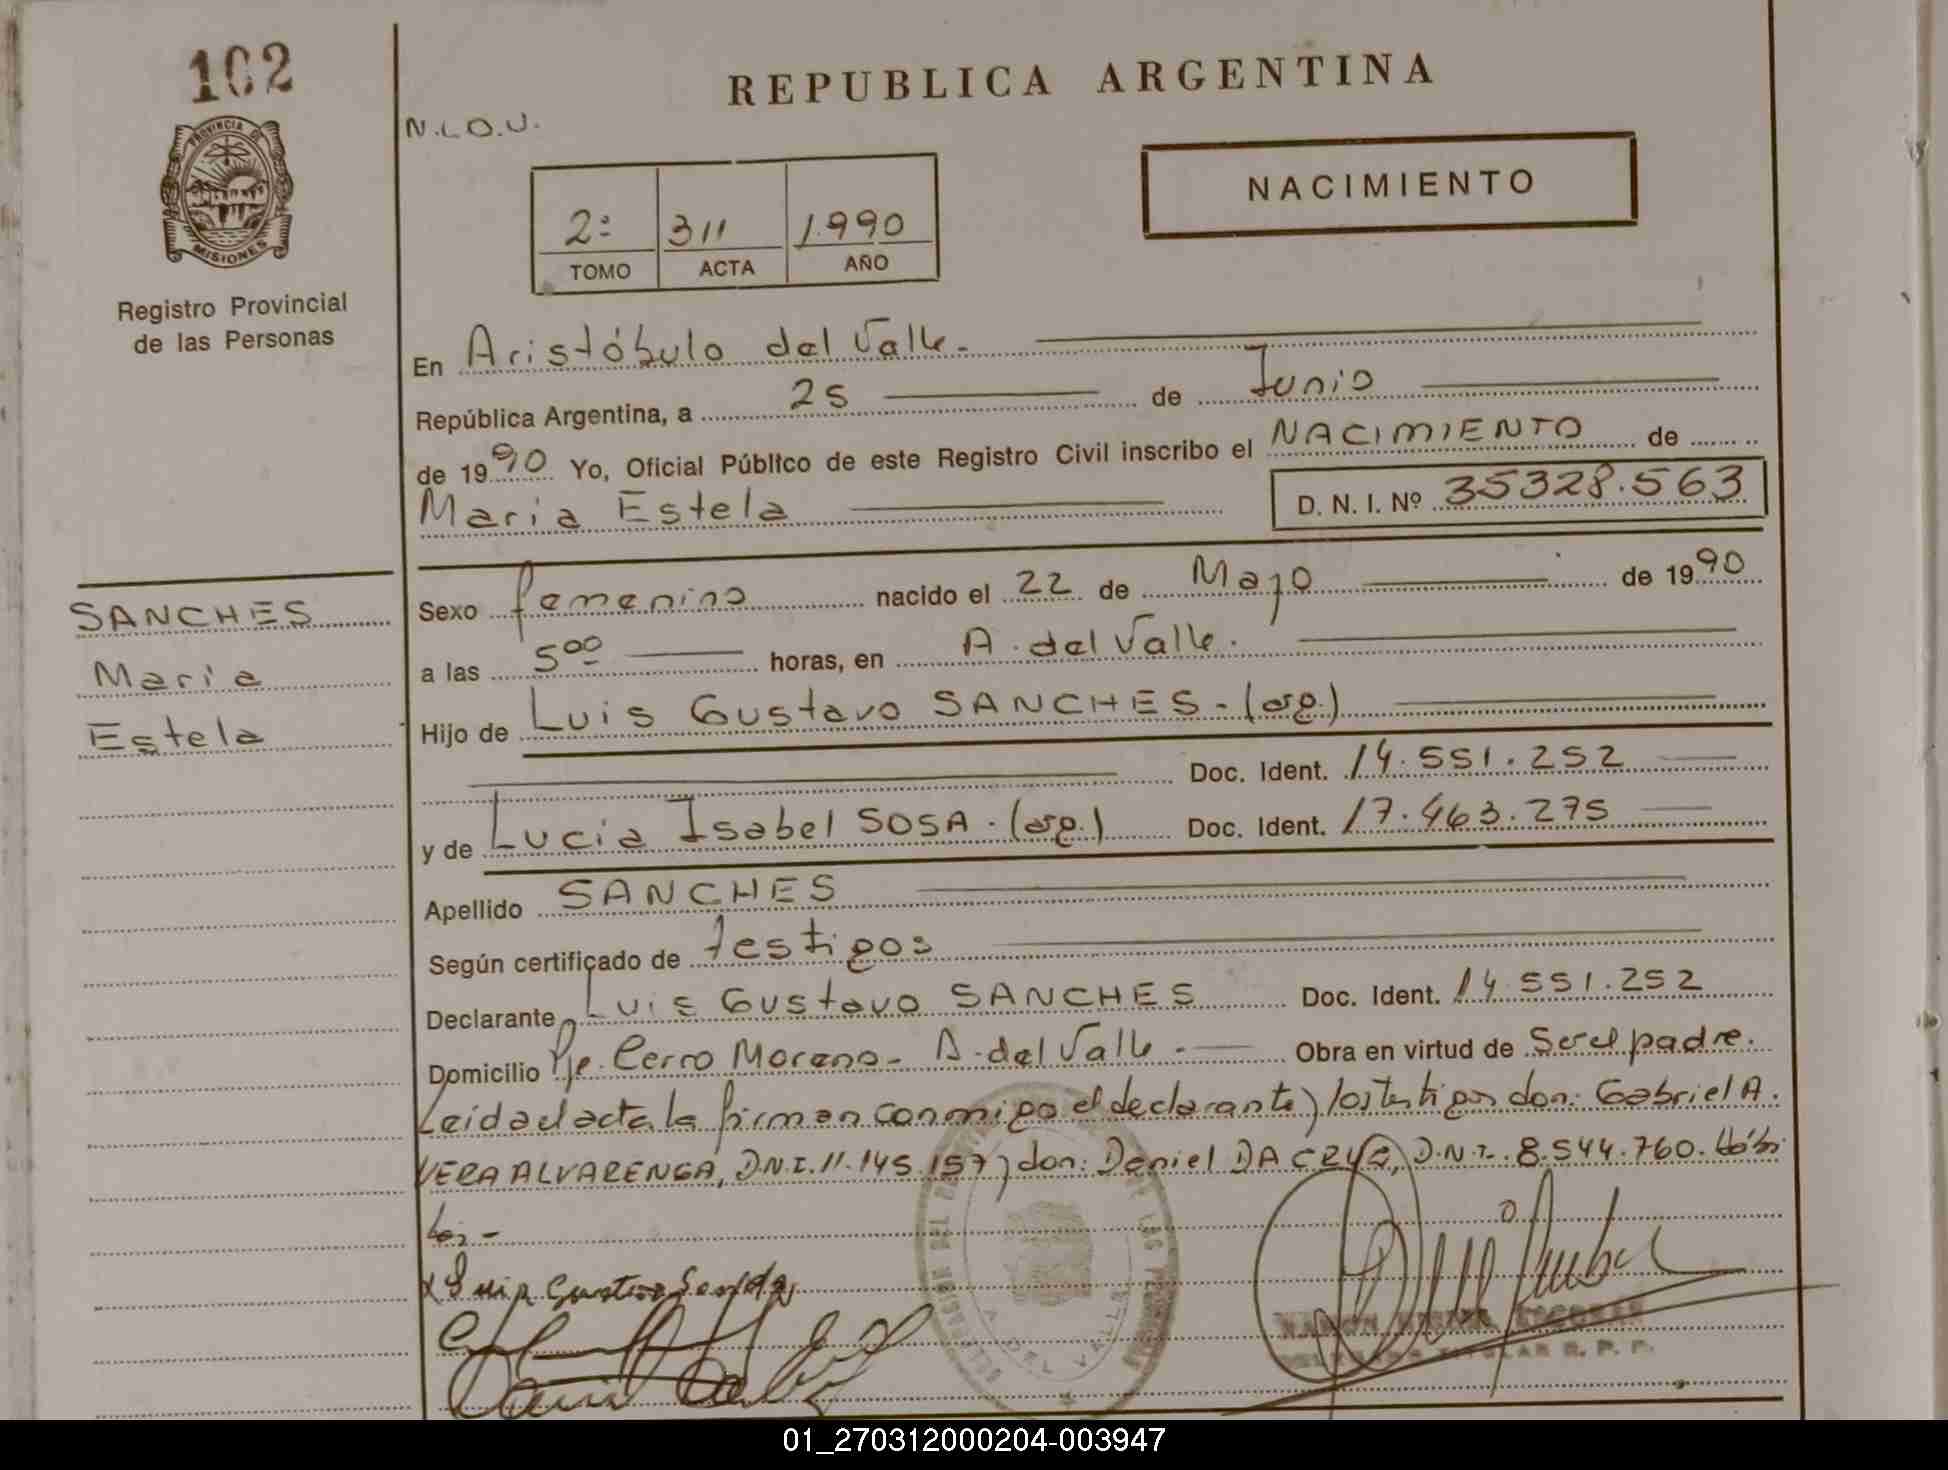 102
PROVINCIA DE
MISIONES
Registro Provincial
de las Personas
SANCHES
Maria
Estela
REPUBLICA ARGENTINA
N.L.O.U.
NACIMIENTO
2º 311 1.990
TOMO ACTA AÑO
En Aristóbulo del Valle.
República Argentina, a 25 de Junio
de 1990 Yo, Oficial Público de este Registro Civil inscribo el NACIMIENTO de
Maria Estela D. N. I. Nº 35328.563
Sexo femenino nacido el 22 de Mayo de 1990
a las 5 00 horas, en A. del Valle.
Hijo de Luis Gustavo SANCHES - (arg.)
Doc. Ident. 14.551.252
y de Lucia Isabel SOSA - (arg.) Doc. Ident. 17.463.275
Apellido SANCHES
Según certificado de testigos
Declarante Luis Gustavo SANCHES Doc. Ident. 14.551.252
Domicilio Pje. Cerro Moreno - A. del Valle. Obra en virtud de Ser el padre.
Leida el acta la firman conmigo el declarante y los testigos don: Gabriel A.
VERA ALVARENGA, D.N.I. 11.145.157 y don: Daniel DA CRUZ, D.N.I. 8.544.760. hábi
les -
A. DEL VALLE
01_270312000204-003947